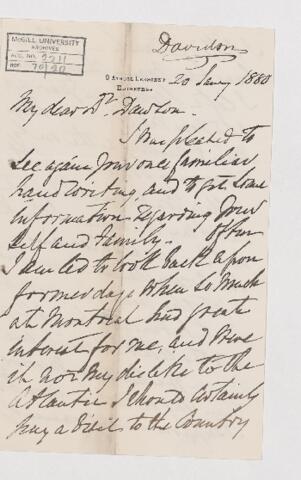 Davidson
McGILL UNIVERSITY
ARCHIVES
ACC. NO. 2211
REF.
EDINBURGH
20 Jany 1880
My dear Dr. Dawson.
I was pleased to
see again your once familiar
handwriting, and to get some
information regarding your
self and family. Often
I am led to look back upon
former days when so much
at Montreal had great
interest for me, and were
it not my dislike to the
Atlantic I should certainly
pay a visit to the Country